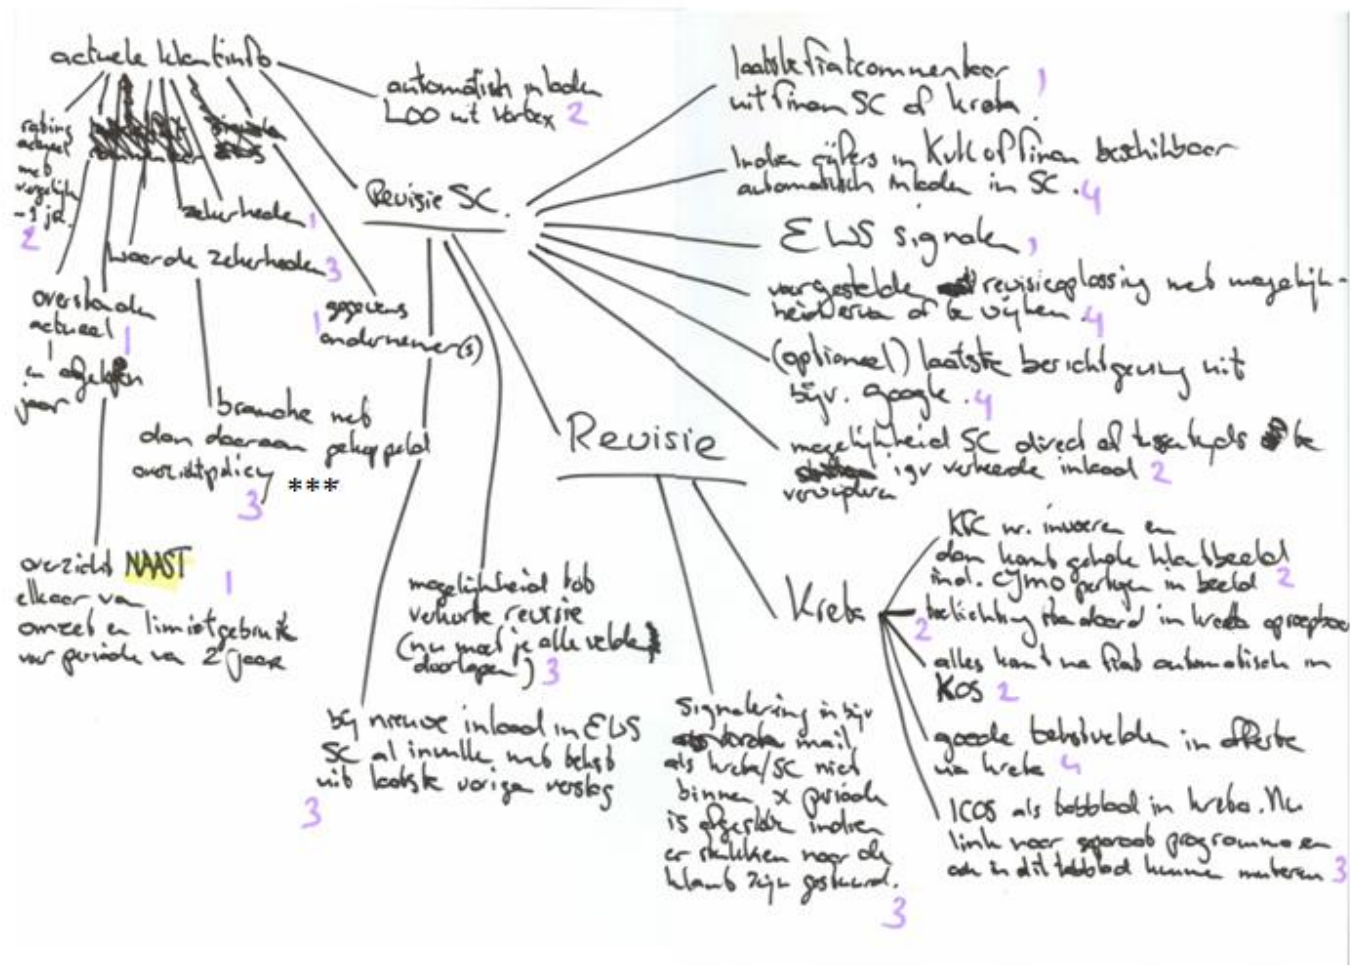 actuele klantinfo
automatisch inladen
LOO uit Vortex 2
rating
actueel
met
vergelijk
-1 jr.
2
zekerheden 1
waarde zekerheden 3
overstanden
actueel 1
en afgelopen
jaar
1 gegevens
ondernemer(s)
branche met
dan daaraan gekoppeld
overzichtpolicy ***
3
overzicht NAAST
elkaar van 1
omzet en limietgebruik
over periode van 2 jaar
Revisie SC.
laatste fiatcommentaar 1
uit Finan SC of kreta
Indien cijfers in KvK of Finan beschikbaar
automatisch inladen in SC. 4
EWS signalen 1
voorgestelde revisieoplossing met mogelijk-
heid ervan af te wijken. 4
(optioneel) laatste berichtgeving uit
bijv. google. 4
mogelijkheid SC direct of tussentijds te
verwijderen igv verkeerde inlaad 2
mogelijkheid tot
verkorte revisie
(nu moet je alle velden
doorlopen) 3
bij nieuwe inlaad in EWS
SC al invullen met tekst
uit laatste vorige verslag
3
Revisie
signalering in bijv
mail
als kreta/SC niet
binnen x periode
is afgerond indien
er stukken naar de
klant zijn gestuurd.
3
Kreta
KvK nr. invoeren en
dan komt gehele klantbeeld
incl. partijen in beeld 2
2 belichting standaard in kreta oproepbaar
alles komt na fiat automatisch in
KOS 2
goede tekstvelden in offerte
via kreta 4
ICOS als tabblad in kreta. Nu
link naar apart programma en
ook in dit tabblad kunnen muteren 3